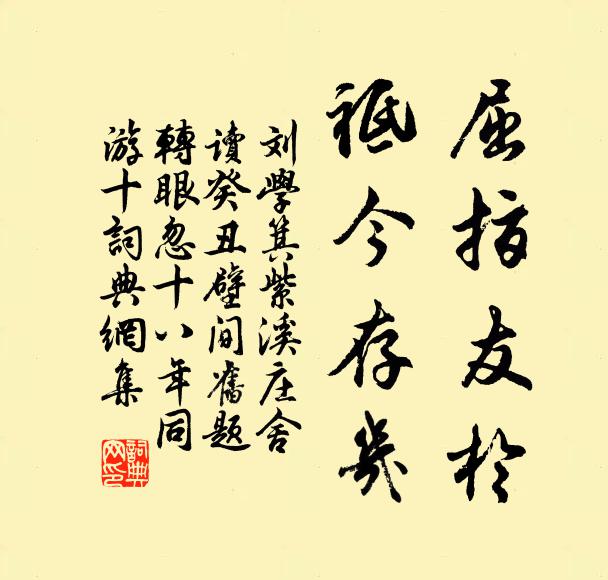 屈指友於
祗今存幾
刘學箕紫溪庄舍
讀癸丑壁间舊题
轉眼忽十八年同
游十詞典網集
詞典
网印